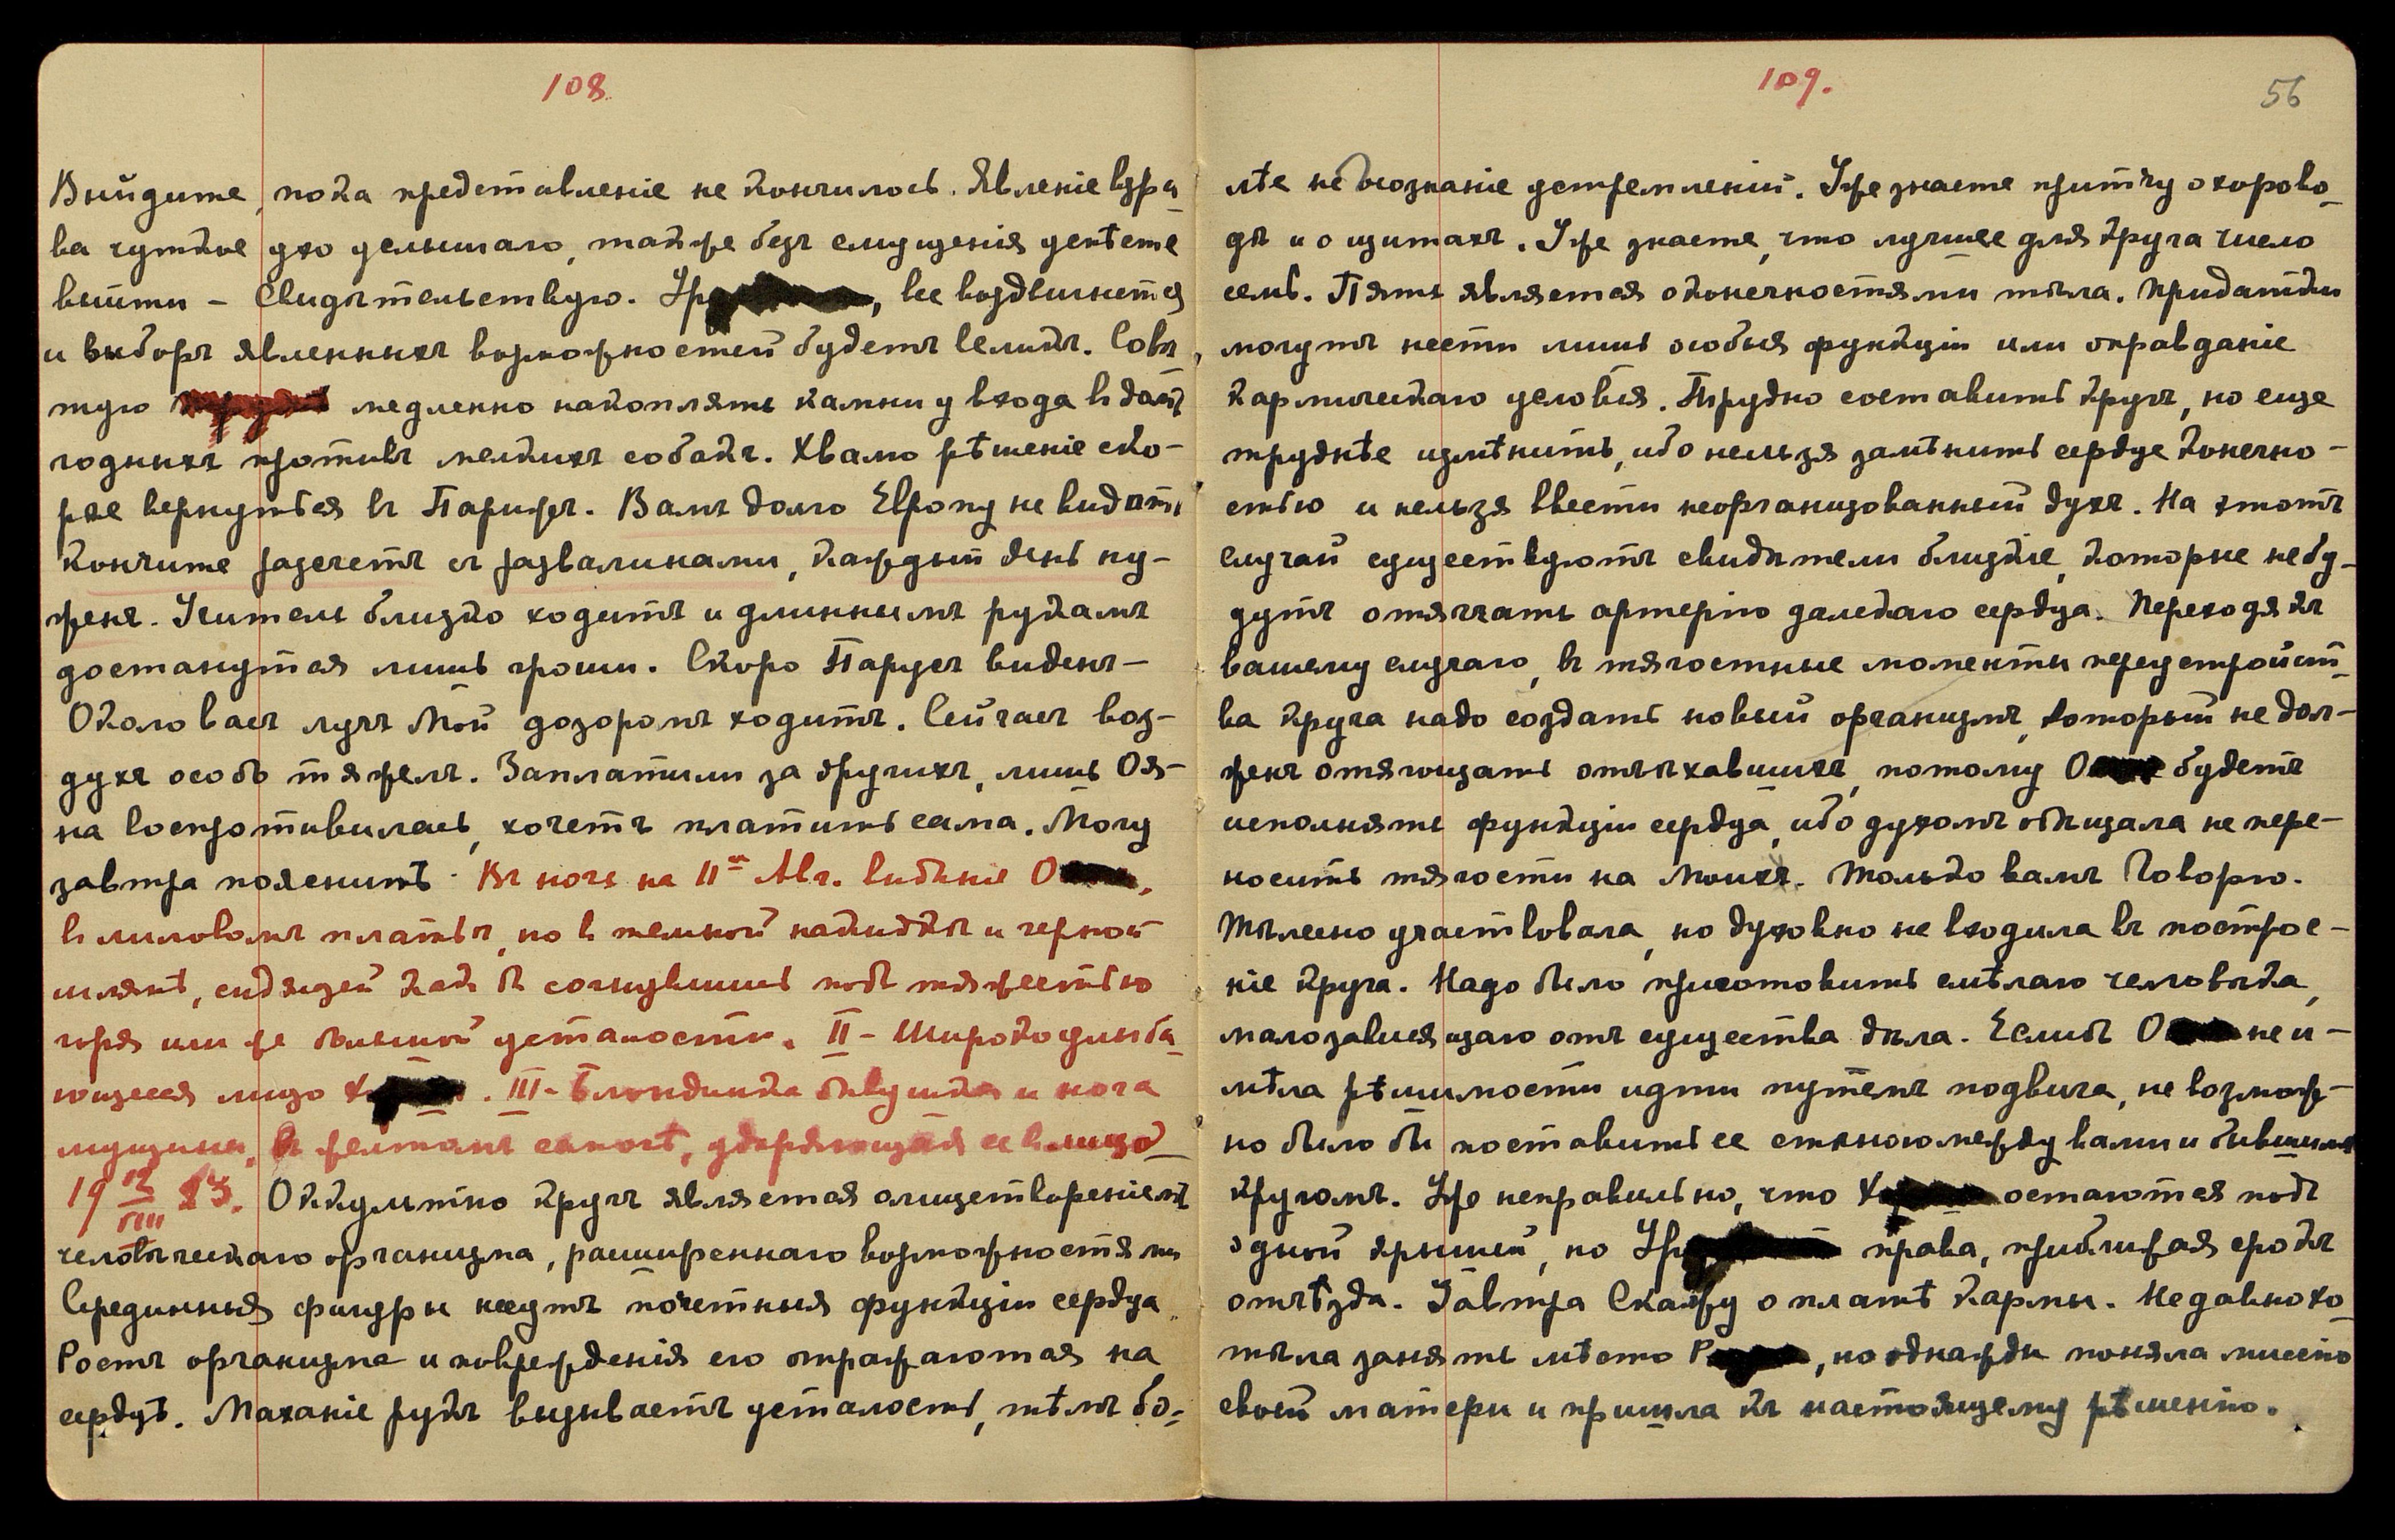 108
Выйдите, пока представленіе не кончилось. Явленіе взры-
ва чуткое ухо услышало, также безъ смущенія успѣете
выйти – Свидѣтельствую. Ур , все воздвигнется
и выборъ явленныхъ возможностей будетъ великъ. Совѣ-
тую медленно накоплять камни у входа
годныхъ противъ мелкихъ собакъ. Хвалю рѣшеніе ско-
рѣе вернуться въ Парижъ. Вамъ долго Европу не видать
Кончите разсчетъ съ развалинами, каждый день ну-
женъ. Учитель близко ходитъ и длиннымъ рукамъ
достанутся лишь гроши. Скоро Парусъ виденъ –
Около васъ лучъ Мой дозоромъ ходитъ. Сейчасъ воз-
духъ особо тяжелъ. Заплатили за другихъ, лишь Оя-
на воспротивилась, хочетъ платить сама. Могу
завтра пояснить. Въ ночь на 11ое Авг. видѣніе О ,
в лиловомъ платьѣ, но в темной накидкѣ и черной
шляпѣ, сидящей какъ бъ согнувшись подъ тяжестью
горя или же большой усталости. II – Широкоулыба-
ющееся лицо Х . III – Блондинка дѣвушка и нога
мущины, въ желтомъ сапогѣ, ударяющая ее в лицо
19 12/VIII 23. Оккультно кругъ является олицетвореніемъ
человѣческаго организма, расширеннаго возможностями
Серединныя фигуры несутъ почетныя функціи сердца.
Ростъ организма и поврежденія его отражаются на
сердцѣ. Маханіе рукъ вызываетъ усталость, тѣмъ бо-
109.
56
лѣе не осознаніе устремленій. Уже знаете притчу о хорово-
дѣ и о щитахъ. Уже знаете, что лучшее для круга число
семь. Пять является оконечностями тѣла. Придатки
могутъ нести лишь особыя функціи или оправданіе
кармическаго условія. Трудно составить кругъ, но еще
труднѣе измѣнить, ибо нельзя замѣнить сердце конечно-
стью и нельзя ввести неорганизованный духъ. На этотъ
случай существуютъ свидѣтели близкіе, которые не бу-
дутъ отягчать артерію далекаго сердца. Переходя къ
вашему случаю, въ тягостные моменты переустройст-
ва круга надо создать новый организмъ, который не дол-
женъ отягощать отъѣхавшихъ, потому О будетъ
исполнять функціи сердца, ибо духомъ обѣщала не пере-
носить тягости на Моихъ. Только вамъ Говорю.
Тѣлесно участвовала, но духовно не входила въ построе-
ніе круга. Надо было приготовить смѣлаго человѣка,
малозависящаго отъ существа дѣла. Еслибъ О не и-
мѣла рѣшимости идти путемъ подвига, не возмож-
но было бы поставить ее стѣною между вами и бывшимъ
кругомъ. Уже неправильно, что Х остаются подъ
одной крышей, но Ур права, приближая срокъ
отъѣзда. Завтра Скажу о платѣ кармы. Недавно хо-
тѣла занять мѣсто Р , но однажды поняла миссію
своей матери и пришла къ настоящему рѣшенію.